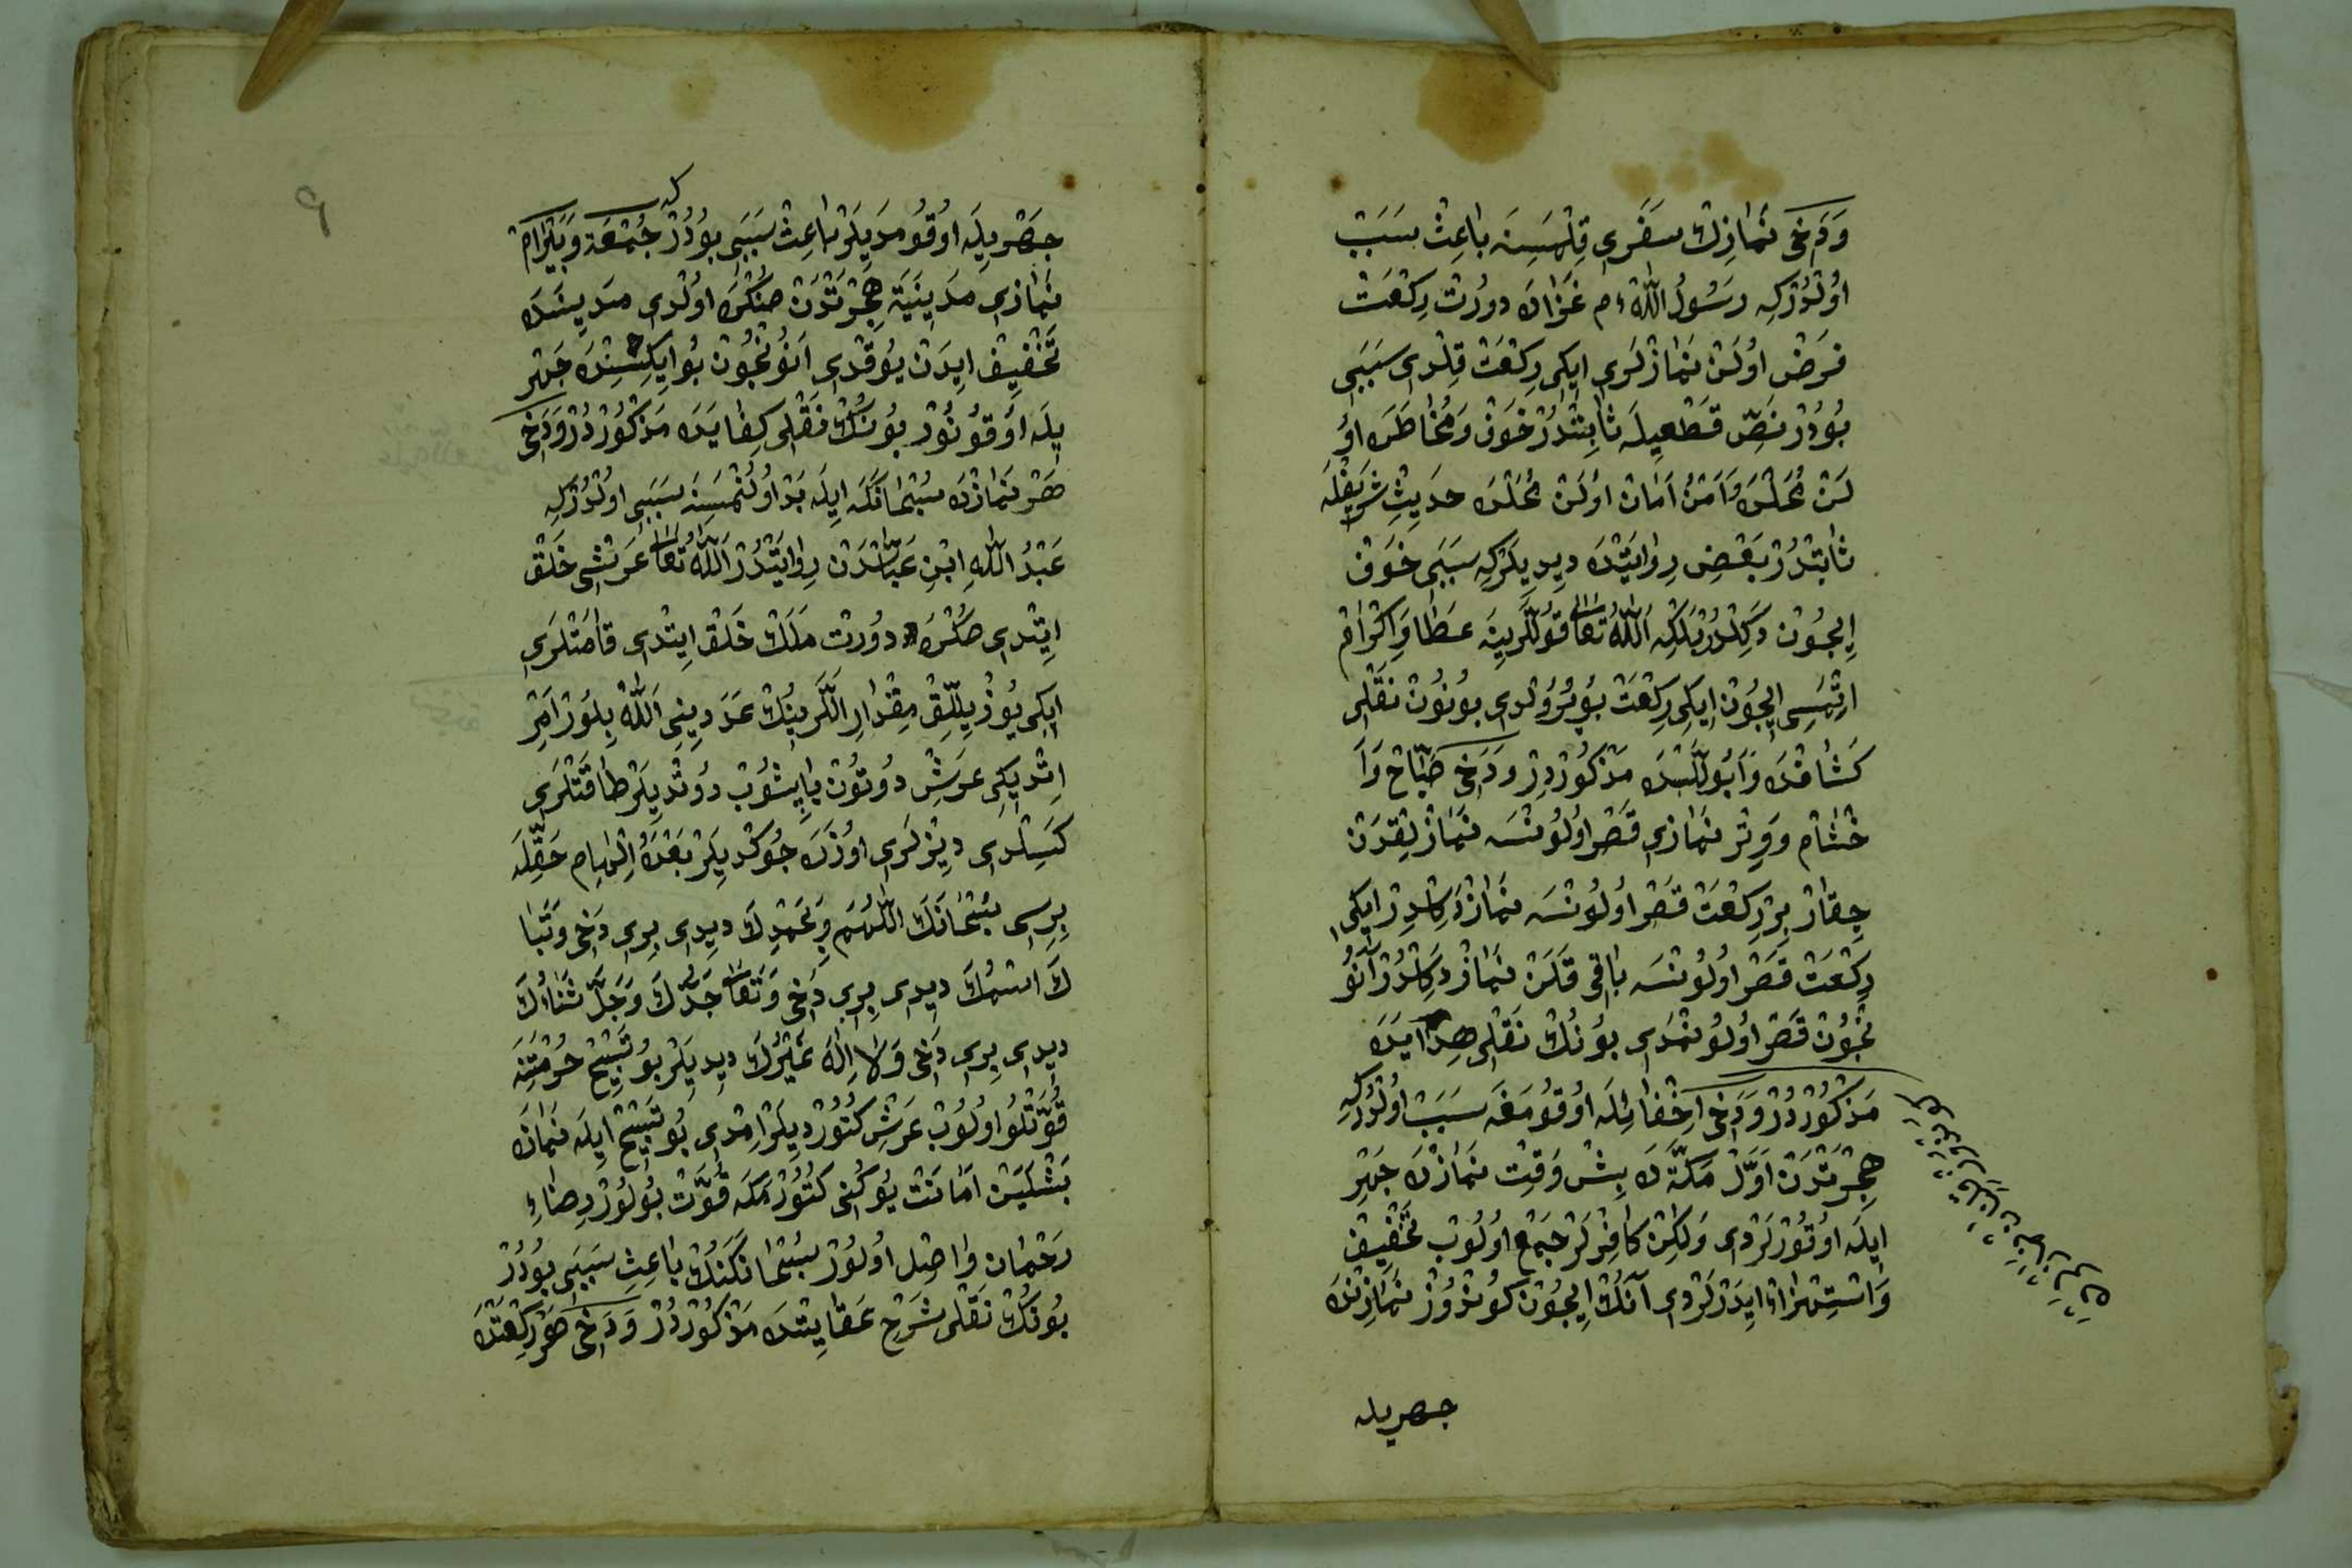 وَدَخِى نَمَازِڭ سَفَرِى قِلْمَسِنَه بَاعِثْ سَبَبْ
اوُلْدُرْكِه رَسُولُ اللّٰه ءم غَزَادَه دورْت رِكْعَتْ
فَرَضْ اوُلَنْ نَمَازْلَرِى ايكِى رِكْعَتْ قِلْدِى سَبَبِى
بُودُرْ نَصِّ قَطْعِيلَه ثَابِتْدُرْ خَوْفْ وَمُخَاطَرَه اوُ
لَنْ مَحَلْدَه وَاَمْنُ اَمَانْ اوُلَنْ مَحَلْدَه حَدِيثِ شَرِيفْلَه
ثَابِتْدُرْ بَعْضِ رِوَايَتْدَه دِيدِيلَرْكِه سَبَبِى خَوْفْ
اِيچُونْ دَكِلْدُرْ بَلْكِه اَللّٰهُ تَعَالٰى قُولْلَرِينَه عَطَا وَاِكْرَامْ
اِتْمَسِى اِيچُونْ اِيكِى رِكْعَتْ بُويُرُوْلدِى بُونُوڭ نَقْلِى
كَشَّافْدَه وَاَبُو لَّيْثْدَه مَذْكُورْدِرْ وَدَخِى صَبَاحْ وَاَ
خْشَامْ وَوِتْر نَمَازِى قَصْر اوُلُونْسَه نَمَازْلِقْدَنْ
چِقَارْ بِرْ رِكْعَتْ قَصْر اوُلُونْسَه نَمَازْ دَكِلْدِرْ ايكِى
رِكْعَتْ قَصْر اوُلُونْسَه بَاقِى قَلَنْ نَمَازْ دَكِلْدُرْ آنُو
نْچُونْ قَصْر اوُلُونْمَدِى بُونُڭ نَقْلِى هِدَايَدَه
مَذْكُورْدُرْ وَدَخِى اِخْفَا ئِلَه اوُقُومَغَه سَبَبْ اوُلْدُرْكِه
هِجْرَتْدَنْ اَوَّلْ مَكَّةَ دَه بِشْ وَقِتْ نَمَازْدَه جَهْرِ
اِيلَه اوُقُورْلَرْدِى وَلٰكِنْ كَافِرْلَرْ جَمْع اوُلُوبْ تَخْفِيفْ
وَاسْتِهْزَاءْ اِيدَرْلَرْدِى آنُڭ اِيچُونْ كُونْدُوزْ نَمَازِنْدَه
جهريله
جَهْرِيلَه اوُقُومَدِيلَرْ بَاعِثْ سَبَبِى بُودُرْ كه جُمْعَه وَبَيْرَامْ
نَمَازِى مَدِينَيَه هِجْرَتْدَنْ صُڭْرَه اوُلْدِى مَدِينَدَه
تَخْفِيفْ اِيدَنْ يُوقْدِى اَنُونْچُونْ بُو اِيكِسِنْدَه جَهْر
يِلَه اوُقُونُورْ بُونُڭ نَقْلِى كِفَايَدَه مَذْكُورْدُرْ وَدَخِى
هَرْ نَمَازْدَه سُبْحَانَكَه اِيلَه بَدْ اوُلُنْمَسِنَه سَبَبِى اوُلْدُرْكِه
عَبْدُ اللّٰهِ اِبْنِ عَبَّاسْدَنْ رِوَايَتْدُرْ اَللّٰهُ تَعَالٰى عَرْشِى خَلْق
اِيتْدِى صُڭْرَه دورْت مَلَكْ خَلْق اِيتْدِى قَامَتْلَرِى
ايكِى يُوزْ يِلْلِقْ مِقْدَارِ اَللَّرِينُڭ عَدَدِينِى اَللّٰه بِلُورْ اَمْرِ
اِتْدِيكِى عَرْشِ دُوتُوڭ يَاپِشُوبْ دُوتْدِيلَرْ طَاقَتْلَرِى
كَسِلْدِى دِيزْلَرِى اوُزَرَه چُوكْدِيلَرْ بَعْدَهُ اِلْهَام حَقِّلَه
بِرِسِى سُبْحَانَكَ اللّٰهُمَّ وَبِحَمْدِكَ دِيدِى بِرِى دَخِى وَتَبَا
رَكَ اسْمُكَ دِيدِى بِرِى دَخِى وَتَعَالٰى جَدُّكَ وَجَلَّ ثَنَاؤُكَ
دِيدِى بِرِى دَخِى وَلَا اِلٰهَ غَيْرُكَ دِيدِيلَرْ بُو تَسْبِيحْ حُرْمَتِنَه
قُوَّتْلُو اوُلُوبْ عَرْشِ كُتُورْدِيلَرْ اِمْدِى بُو تَسْبِيحْ اِيلَه نَمَازَه
بَشْلَيَنْ اَمَانَتْ يُوكُنِى كُتُورْمَكَه قُوَّتْ بُولُورْ رِضَاءِ
رَحْمَان وَاصِل اوُلُورْ سُبْحَانَكَنُڭ بَاعِثِ سَبَبِى بُودُرْ
بُونُڭ نَقْلِى شَرْحِ عَقَايِدْدَه مَذْكُورْدُرْ وَدَخِى هَرْ رِكْعَتْدَه